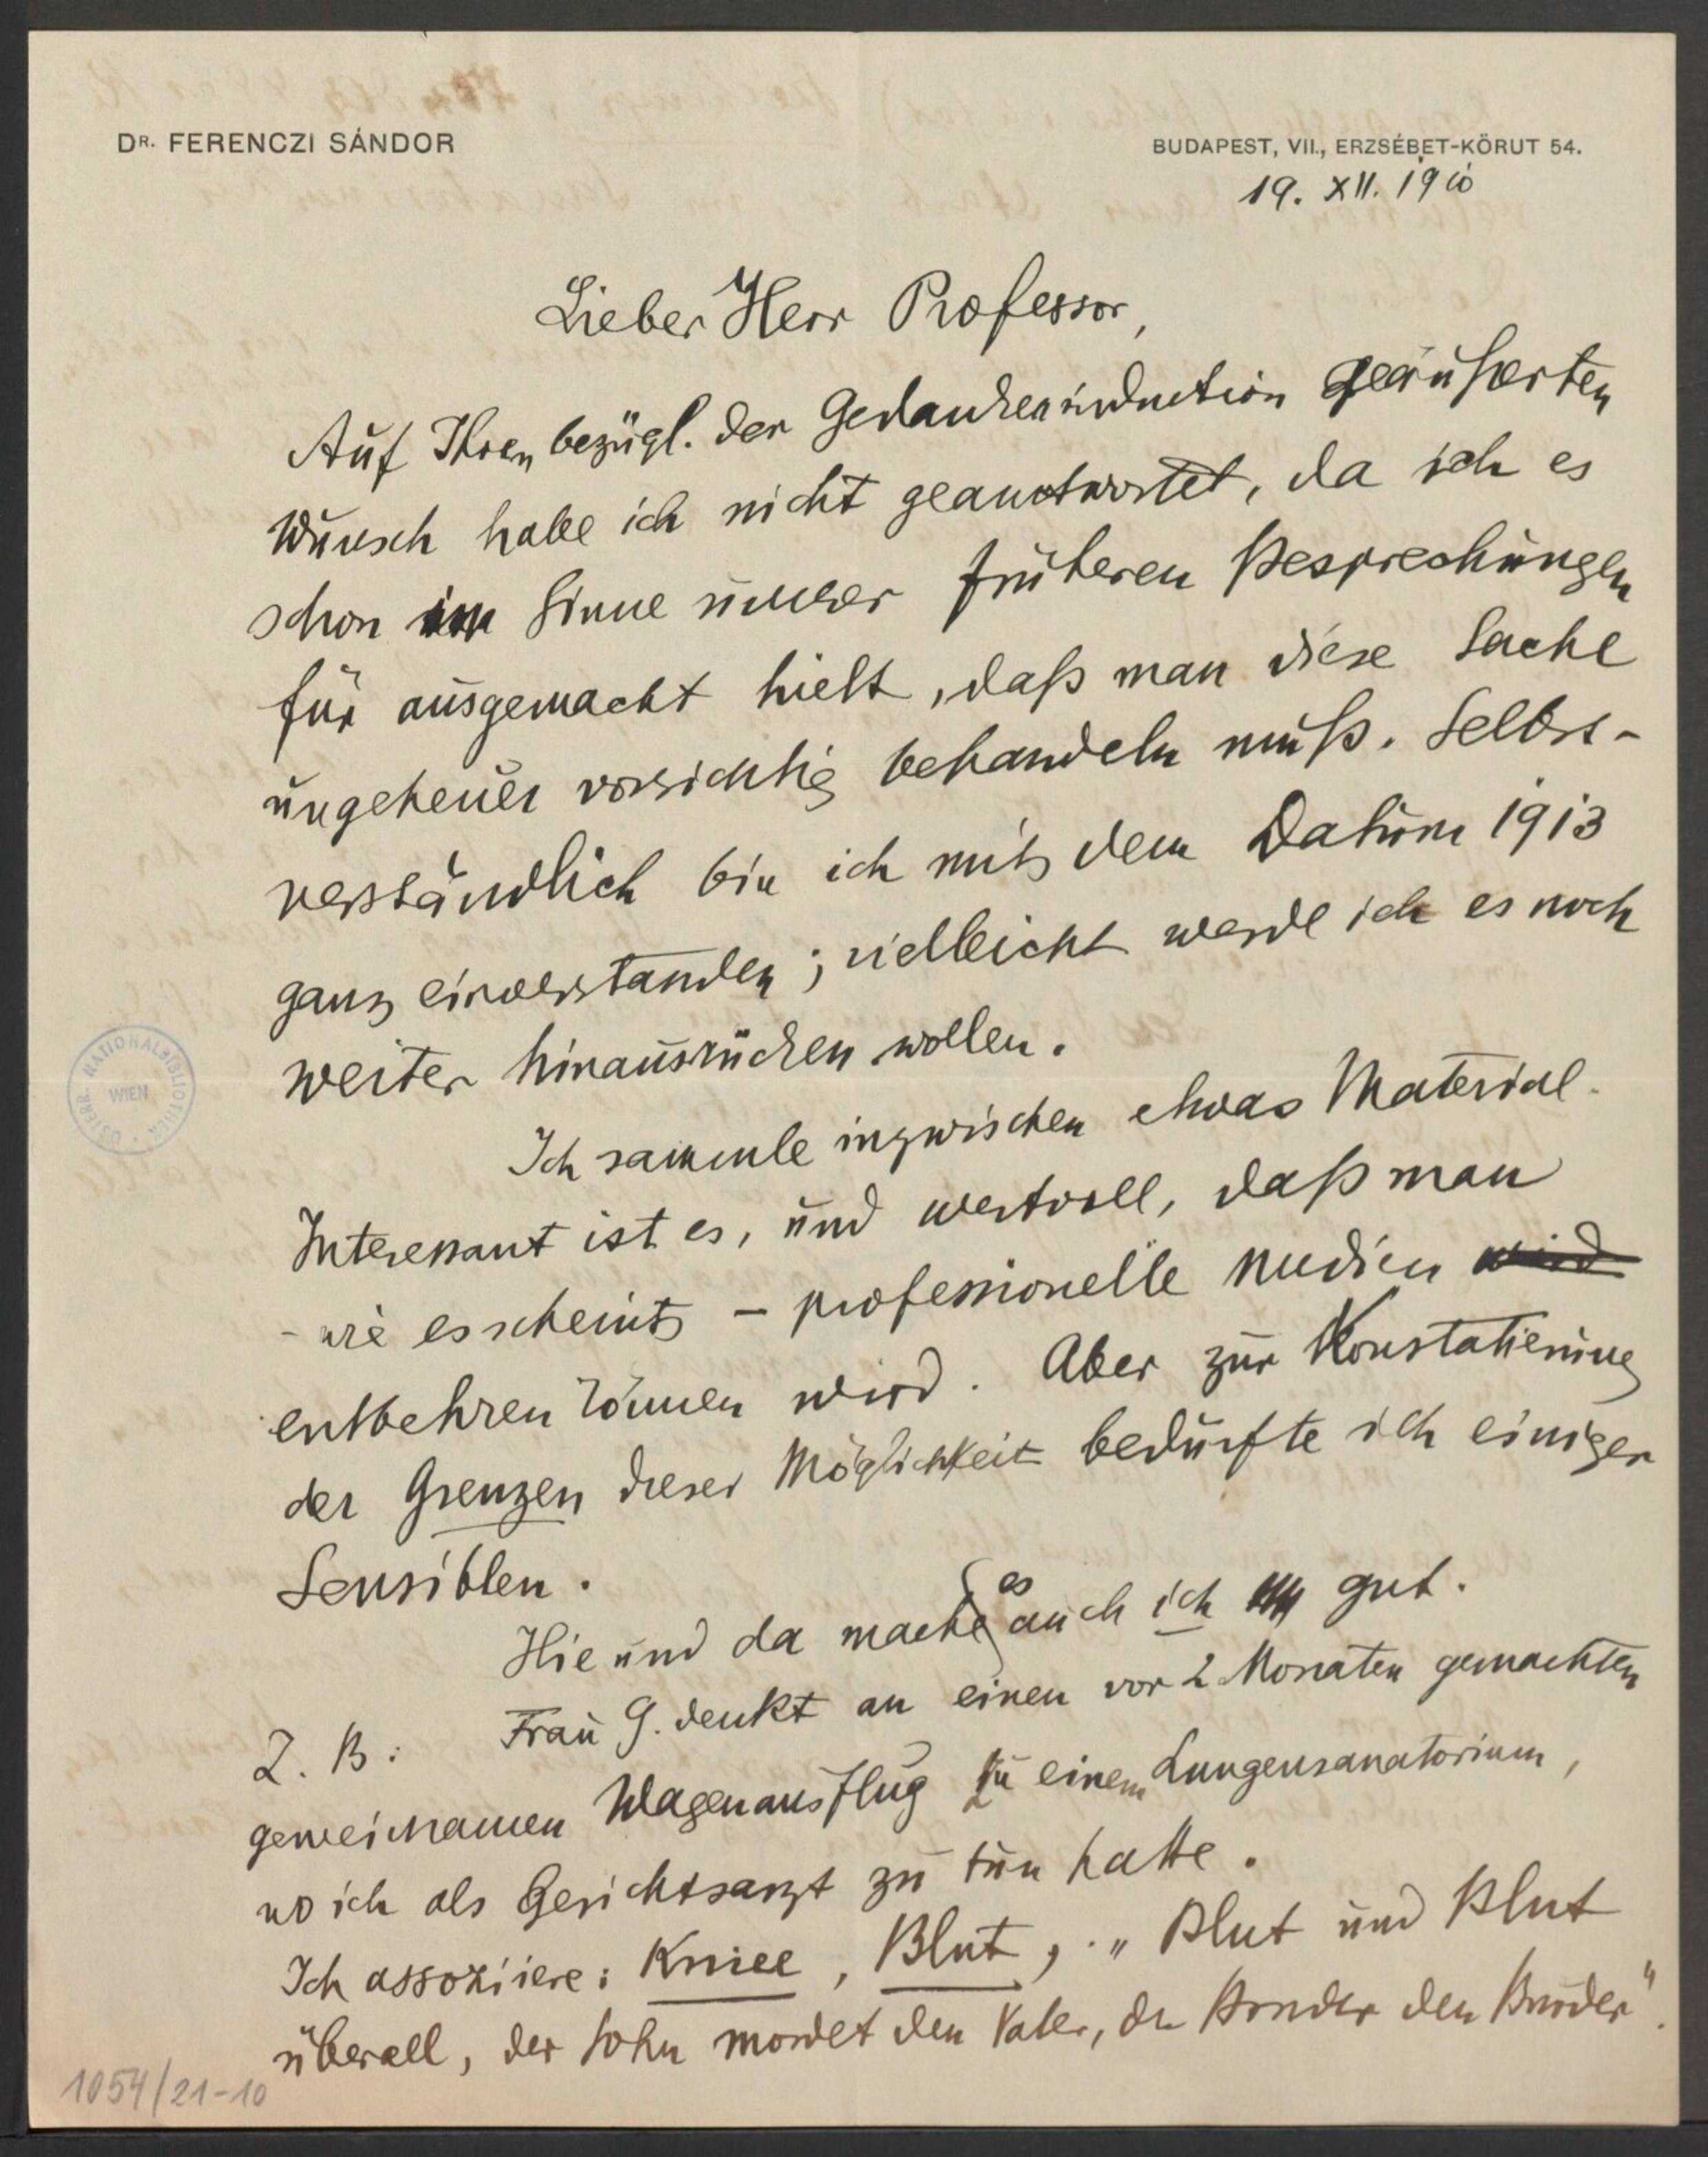 DR. FERENCZI SÁNDOR
BUDAPEST, VII., ERZSÉBET-KÖRUT 54.
19. XII. 1910
Lieber Herr Professor,
Auf Ihren bezügl. der Gedankeninduction geäußerten
Wunsch habe ich nicht geantwortet, da ich es
schon im Sinne unserer früheren Besprechungen
für ausgemacht hielt, daß man diese Sache
ungeheuer vorsichtig behandeln muß. Selbst-
verständlich bin ich mit dem Datum 1913
ganz einverstanden; vielleicht werde ich es noch
weiter hinausrücken wollen.
Ich sammle inzwischen etwas Material.
Interessant ist es, und wertvoll, daß man
- wie es scheint - professionelle Medien wird
entbehren können wird. Aber zur Konstatierung
der Grenzen dieser Möglichkeit bedürfte ich einiger
Sensiblen.
Hie und da mache es auch ich gut.
Z. B: Frau G. denkt an einen vor 2 Monaten gemachten
gemeinsamen Wagenausflug zu einem Lungensanatorium,
wo ich als Gerichtsarzt zu tun hatte.
Ich assoziiere: Kniee, Blut, „Blut und Blut
überall, der Sohn mordet den Vater, der Bruder den Bruder".
1054/21-10
ÖSTERR. NATIONALBIBLIOTHEK
WIEN